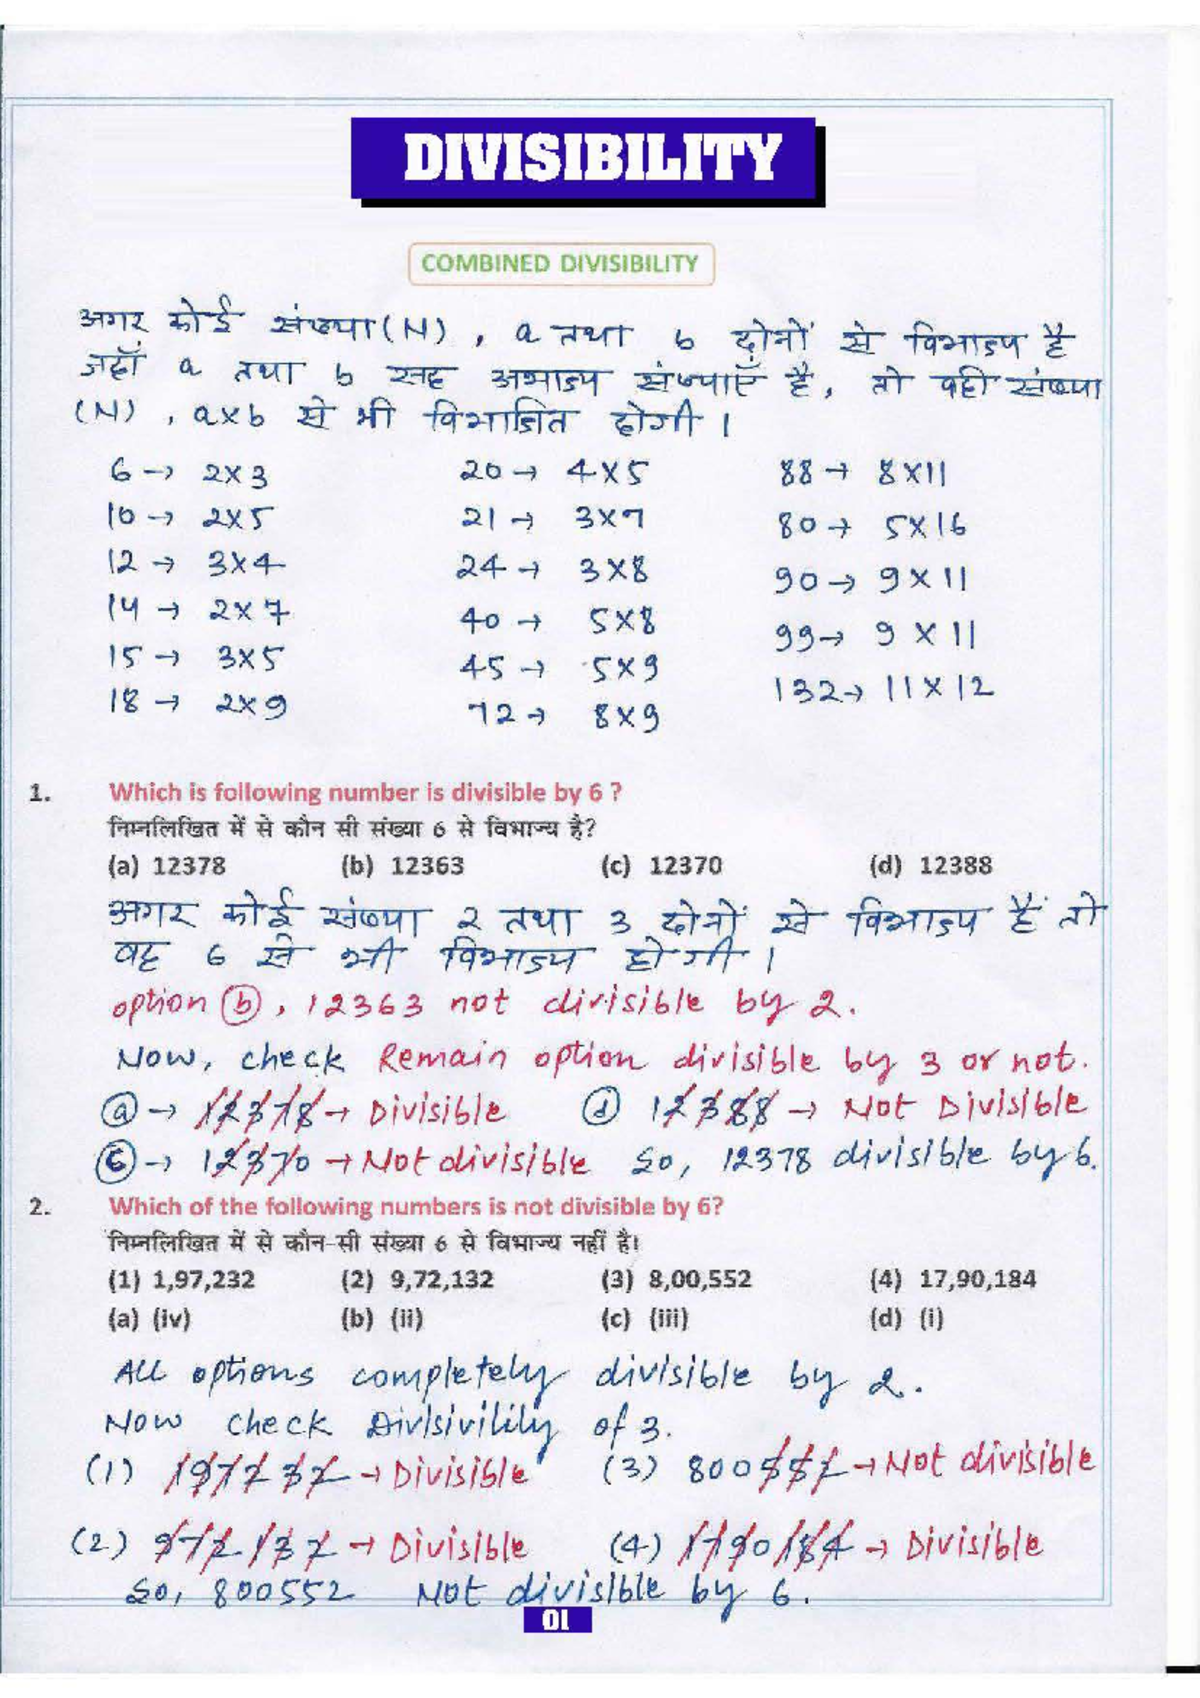 DIVISIBILITY
COMBINED DIVISIBILITY
अगर कोई संख्या (N) , a तथा b दोनों से विभाज्य है
जहाँ a तथा b सह अभाज्य संख्याएँ है, तो वही संख्या
(N) , a×b से भी विभाजित होगी ।
6 → 2×3 20 → 4×5 88 → 8×11
10 → 2×5 21 → 3×7 80 → 5×16
12 → 3×4 24 → 3×8 90 → 9×11
14 → 2×7 40 → 5×8 99 → 9×11
15 → 3×5 45 → 5×9 132 → 11×12
18 → 2×9 72 → 8×9
1. Which is following number is divisible by 6 ?
निम्नलिखित में से कौन सी संख्या 6 से विभाज्य है?
(a) 12378 (b) 12363 (c) 12370 (d) 12388
अगर कोई संख्या 2 तथा 3 दोनों से विभाज्य हैं तो
वह 6 से भी विभाज्य होगी ।
option (b) , 12363 not divisible by 2.
Now, check Remain option divisible by 3 or not.
(a) → 12378 → Divisible (d) 12388 → Not Divisible
(c) → 12370 → Not divisible So, 12378 divisible by 6.
2. Which of the following numbers is not divisible by 6?
निम्नलिखित में से कौन-सी संख्या 6 से विभाज्य नहीं है।
(1) 1,97,232 (2) 9,72,132 (3) 8,00,552 (4) 17,90,184
(a) (iv) (b) (ii) (c) (iii) (d) (i)
All options completely divisible by 2.
Now check Divisivilily of 3.
(1) 197232 → Divisible (3) 800552 → Not divisible
(2) 972132 → Divisible (4) 1790184 → Divisible
So, 800552 Not divisible by 6.
01